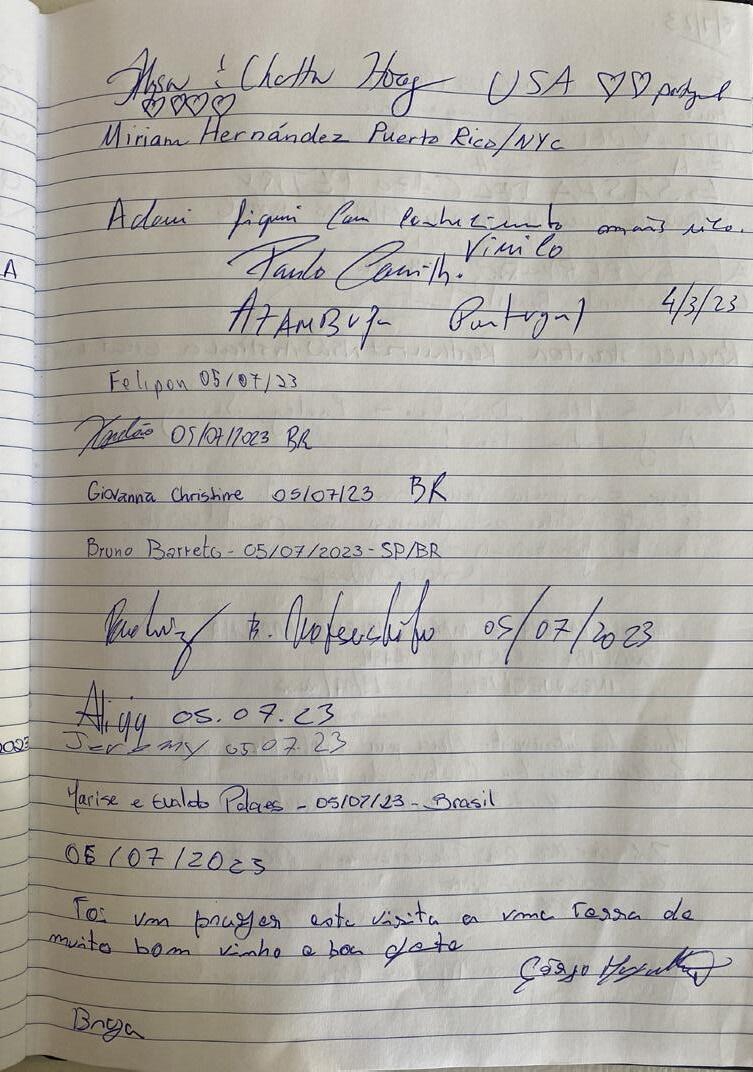 USA ♡♡ portugal
♡♡♡♡
Miriam Hernández Puerto Rico/NYC
Adorei fiquei com conhecimento mais rico.
Vinilo
Paulo
AZAMBUJA Portugal 4/3/23
Felipon 05/07/23
05/07/2023 BR
Giovanna Christine 05/07/23 BR
Bruno Barreto - 05/07/2023 - SP/BR
B. 05/07/2023
05.07.23
Jeremy 05.07.23
Marise e Evaldo - 05/07/23 - Brasil
05/07/2023
Foi um prazer esta visita a uma terra de
muito bom vinho e boa
Braga
A
2023